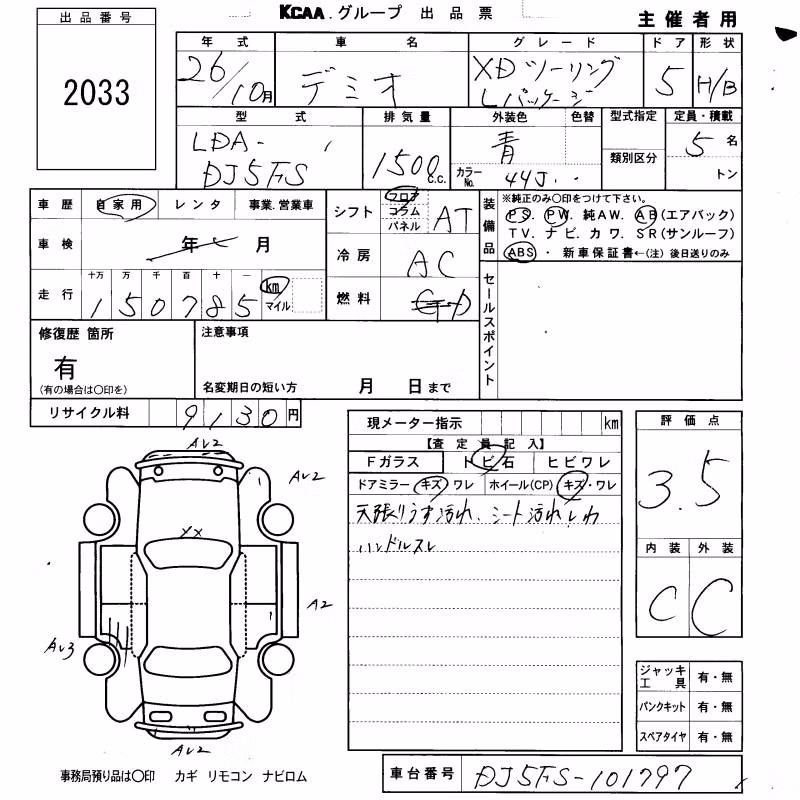 KCAA.グループ 出品票
主催者用
出品番号
2033
年式 車名 グレード ドア 形状
26/10月 デミオ XDツーリング Lパッケージ 5 H/B
型式 排気量 外装色 色替 型式指定 定員・積載
LDA-
DJ5FS 1500c.c. 青 5名
カラーNo. 44J 類別区分 トン
車歴 自家用 レンタ 事業.営業車
シフト フロア コラム パネル AT
装備品
※純正のみ〇印をつけて下さい。
PS. PW. 純AW. AB(エアバック)
TV. ナビ. カワ. SR(サンルーフ)
ABS ・ 新車保証書←(注)後日送りのみ
車検 年 月
冷房 AC
走行 十万 万 千 百 十 一
150785 km マイル
燃料
セールスポイント
修復歴 箇所
有
(有の場合は〇印を)
注意事項
名変期日の短い方 月 日まで
リサイクル料 9130円
現メーター指示 km
【査定員記入】
Fガラス トビ石 ヒビワレ
ドアミラー キズ ワレ ホイール(CP) キズ・ワレ
天張りうす汚れ、シート汚れしわ
ハンドルスレ
評価点
3.5
内装 外装
C C
AU2
AU2
YX
A2
AU3
AU2
ジャッキ工具 有・無
パンクキット 有・無
スペアタイヤ 有・無
事務局預り品は〇印 カギ リモコン ナビロム
車台番号 DJ5FS-101797